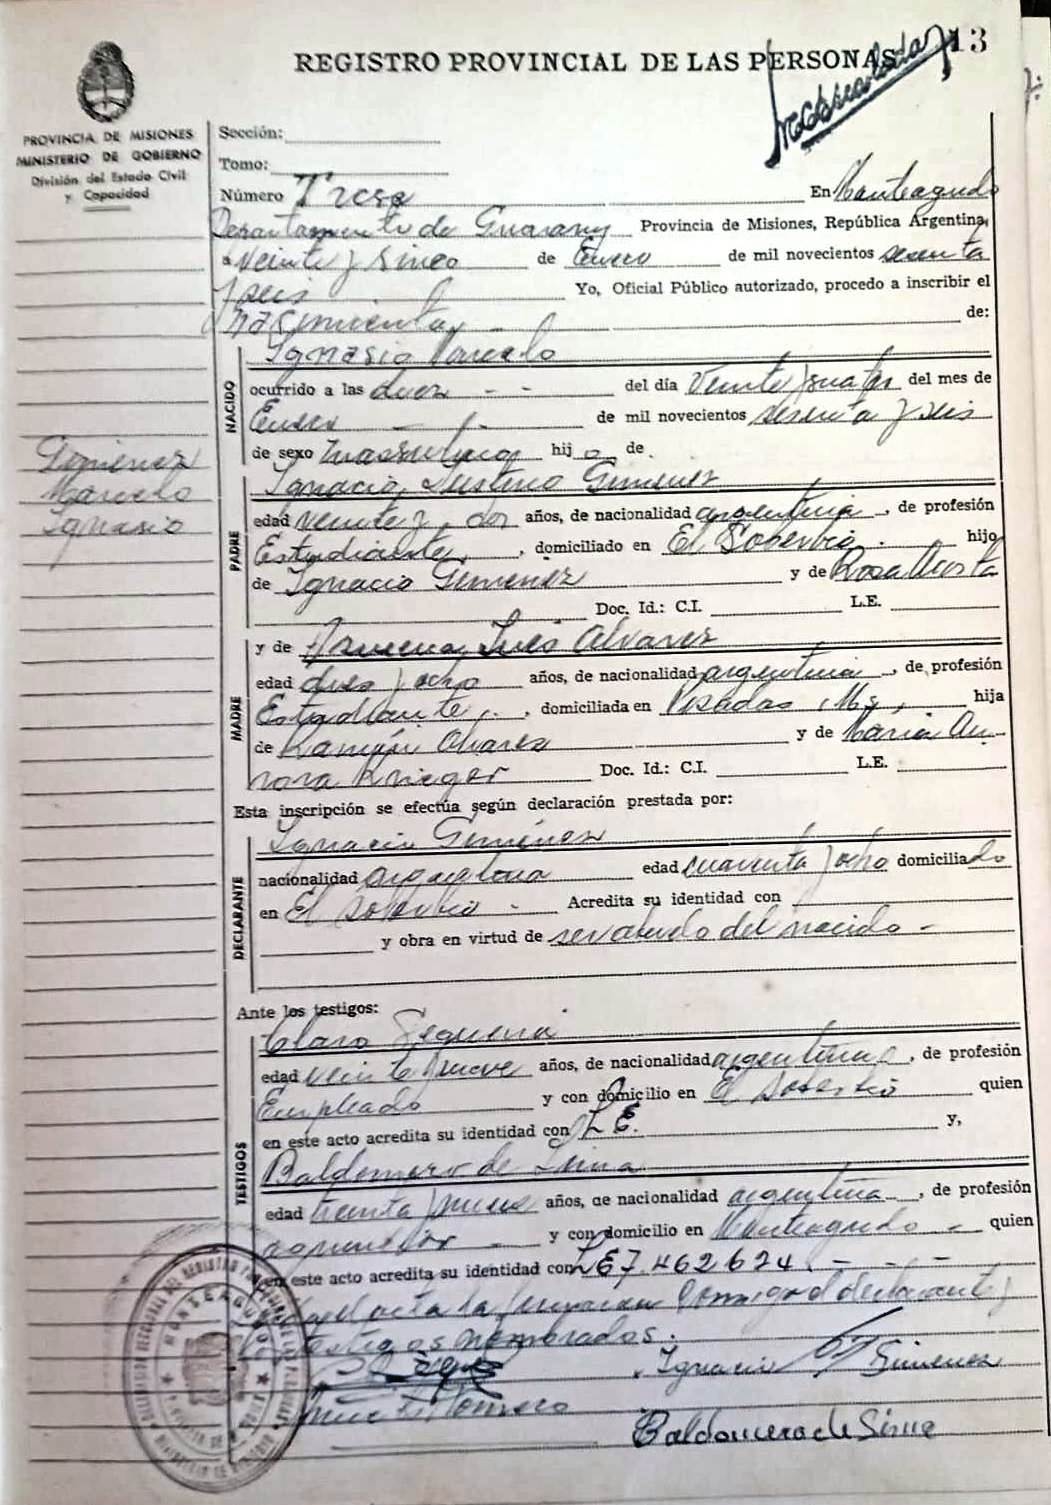 13
REGISTRO PROVINCIAL DE LAS PERSONAS
PROVINCIA DE MISIONES
MINISTERIO DE GOBIERNO
División del Estado Civil
y Capacidad
Sección:
Tomo:
Número Trese En Monteagudo
Departamento de Guarany Provincia de Misiones, República Argentina,
a Veinte y Sinco de Enero de mil novecientos sesenta
y seis Yo, Oficial Público autorizado, procedo a inscribir el
nasimiento de:
Ignasio Marcelo
NACIDO
ocurrido a las diez del día Veinte y cuatro del mes de
Enero de mil novecientos sesenta y seis
de sexo masculino hijo de
Gimenez
Marcelo
Ignasio
Ignacio Gimenez
PADRE
edad veinte y dos años, de nacionalidad argentina, de profesión
Estudiante, domiciliado en El Soberbio hijo
de Ignacio Gimenez y de Rosa Acosta
Doc. Id.: C.I. L.E.
y de Inés Alvarez
MADRE
edad dies y ocho años, de nacionalidad argentina, de profesión
Estudiante, domiciliada en Posadas, Ms, hija
de Ramón Alvarez y de María Au-
rora Krieger Doc. Id.: C.I. L.E.
Esta inscripción se efectúa según declaración prestada por:
Ignacio Giménez
DECLARANTE
nacionalidad argentina edad cuarenta y ocho domiciliado
en El Soberbio Acredita su identidad con
y obra en virtud de ser abuelo del nacido -
Ante los testigos:
Claro Sequeira
TESTIGOS
edad veinte y nueve años, de nacionalidad argentina, de profesión
Empleado y con domicilio en El Soberbio quien
en este acto acredita su identidad con L E. y,
Baldomero de Lima
edad treinta y nueve años, de nacionalidad argentina, de profesión
agricultor y con domicilio en Monteagudo quien
en este acto acredita su identidad con LE 7.462624. - - -
el acta la conmigo el declarante y
testigos nombrados.
Ignacio Gimenez
Baldomero de Lima